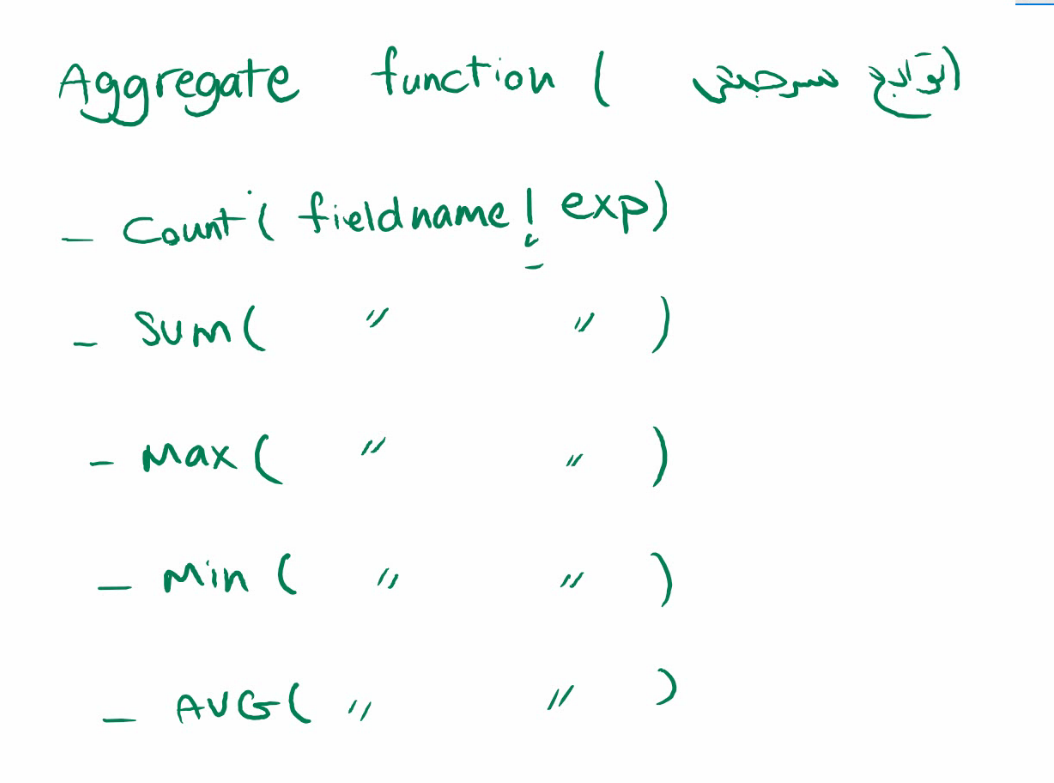 Aggregate function ( توابع سرجمعی )
- Count ( fieldname | exp)
یا
- Sum ( " " )
- Max ( " " )
- Min ( " " )
- AVG ( " " )